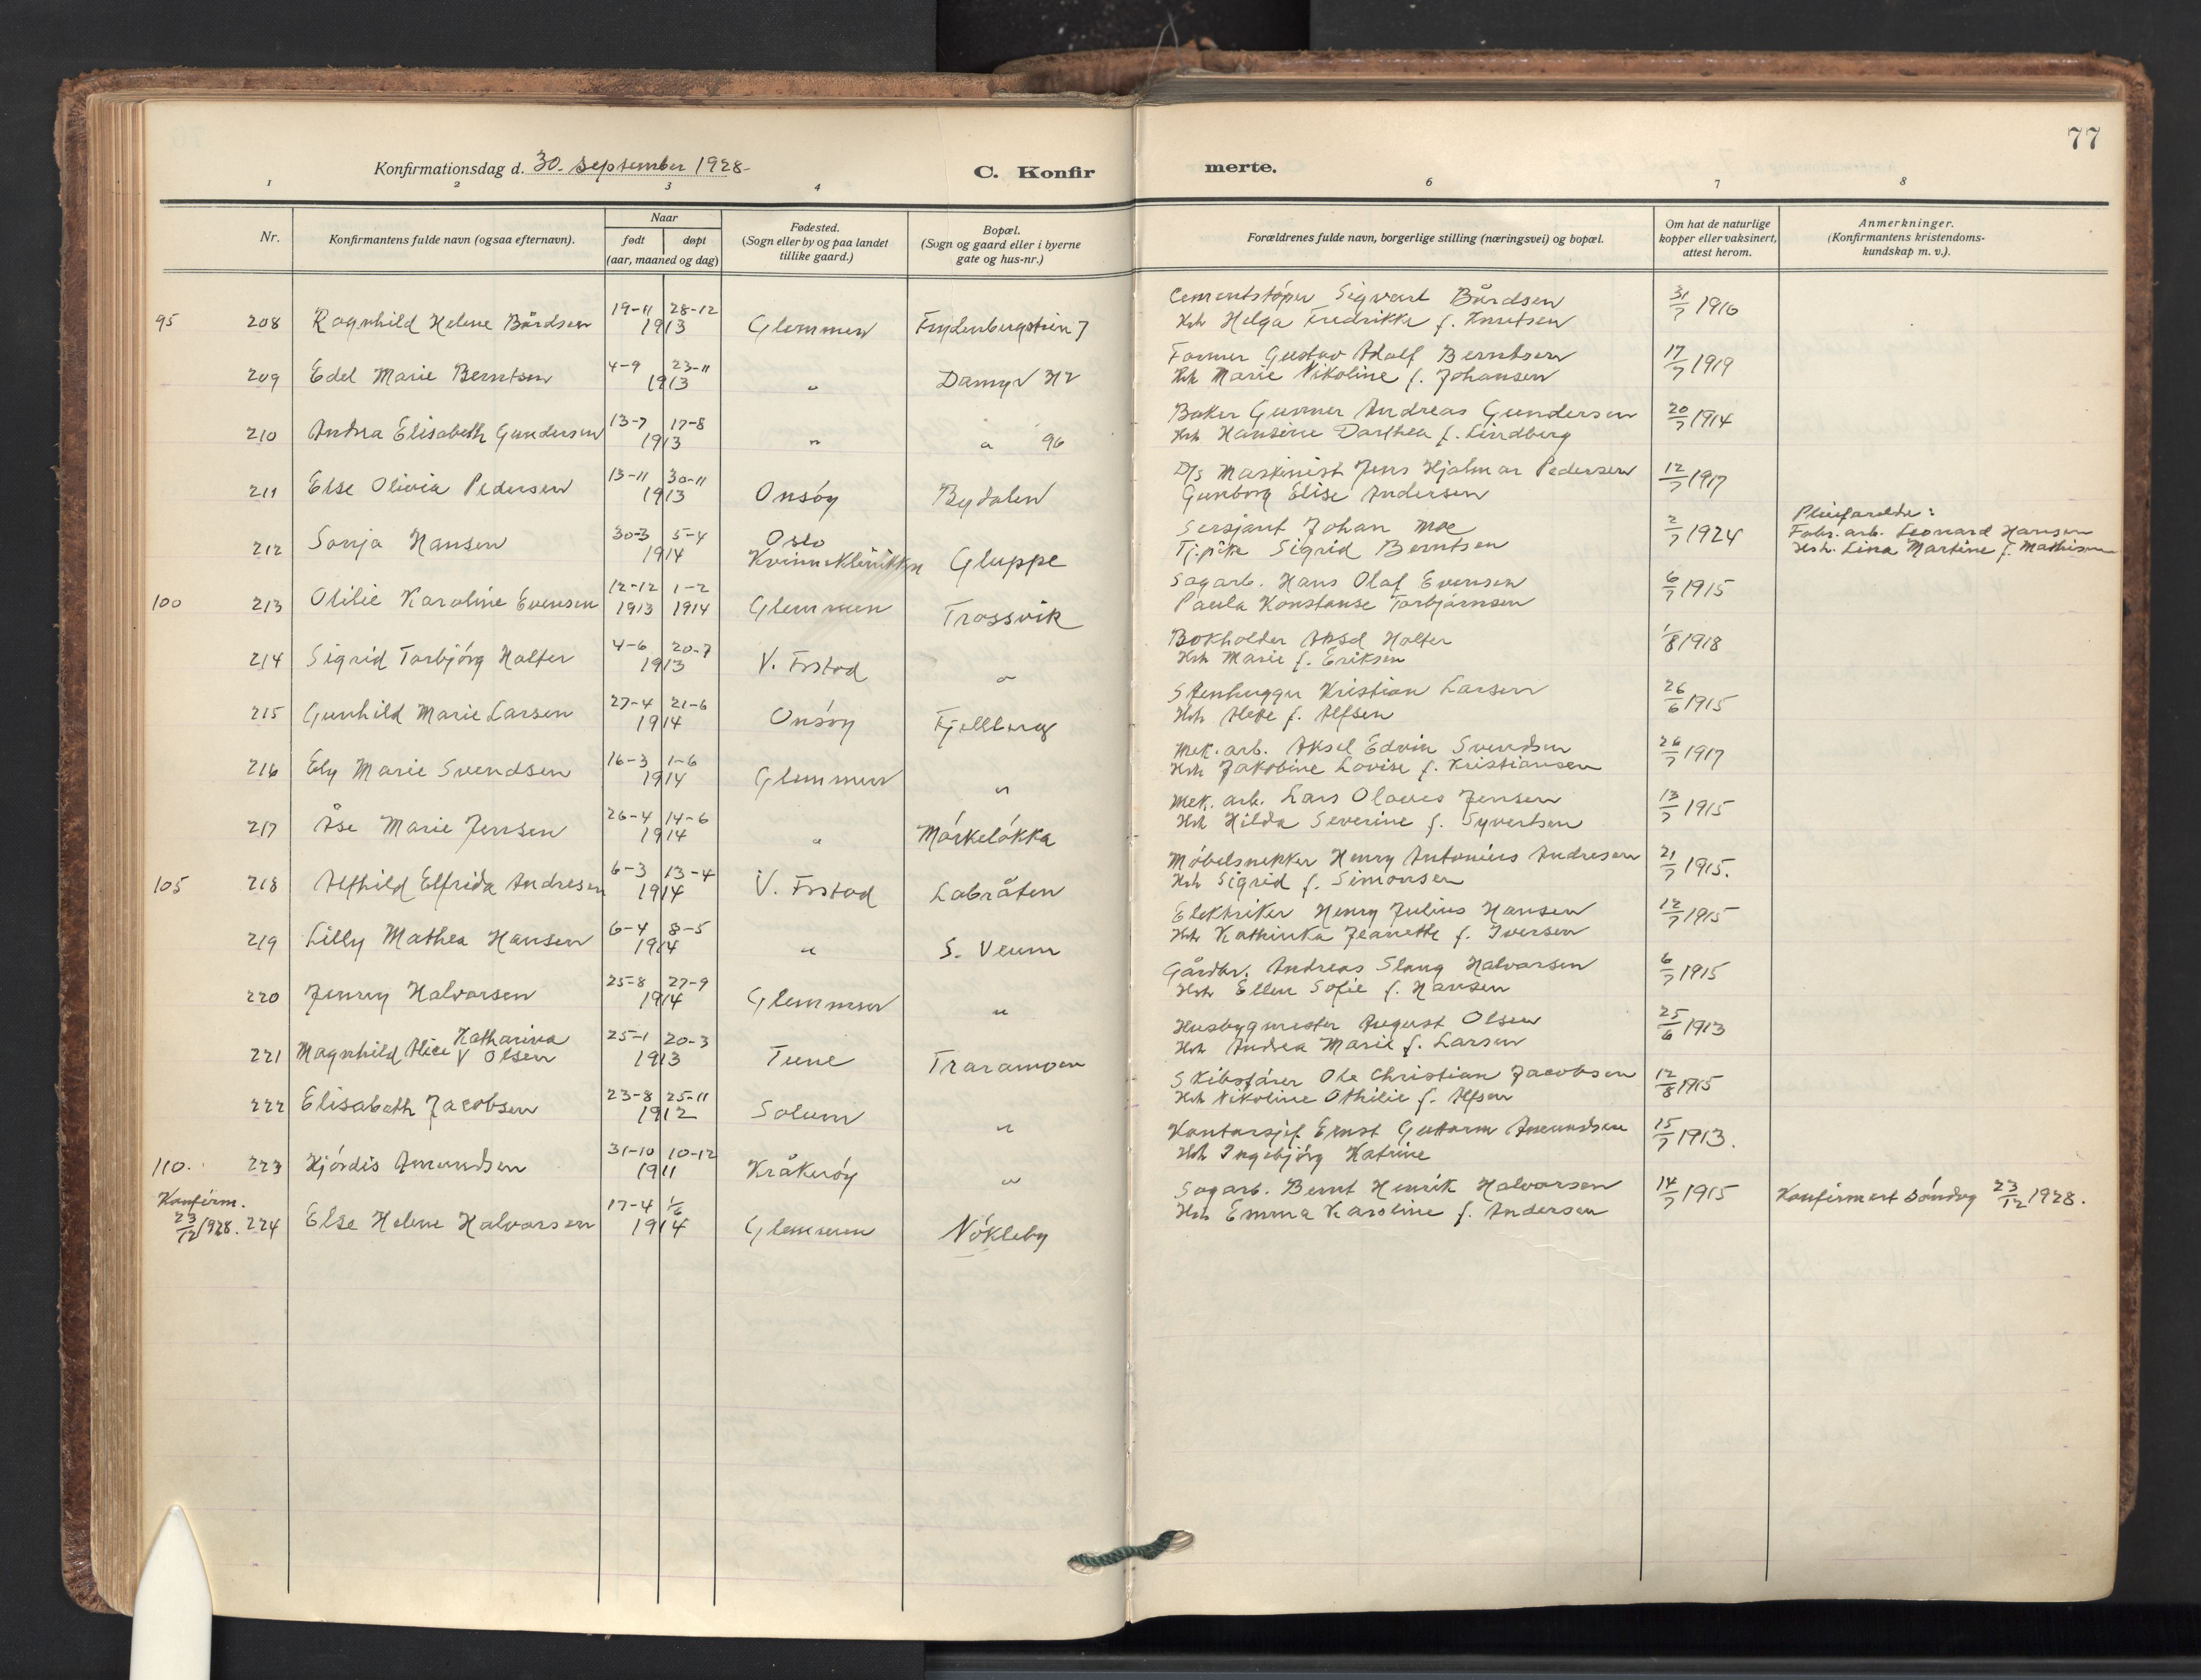 77
Konfirmationsdag d. 30. september 1928-
C. Konfirmerte.
1 2 3 4 6 7 8
Nr.
Konfirmantens fulde navn (ogsaa efternavn).
Naar
født døpt
(aar, maaned og dag)
Fødested.
(Sogn eller by og paa landet
tillike gaard.)
Bopæl.
(Sogn og gaard eller i byerne
gate og hus-nr.)
Forældrenes fulde navn, borgerlige stilling (næringsvei) og bopæl.
Om hat de naturlige
kopper eller vaksinert,
attest herom.
Anmerkninger.
(Konfirmantens kristendoms-
kundskap m. v.).
95 208 Ragnhild Helene Bårdsen 19-11 28-12 1913 Glemmen 7
Cementstøper Sigvart Bårdsen
Hsh Helga Fredrikke f. Knutsen
31/7 1916
209 Edel Marie Berntsen 4-9 23-11 1913 " Damyr
Former Gustav Adolf Berntsen
Hsh Marie Nikoline f. Johansen
17/7 1919
210 Andrea Elisabeth Gundersen 13-7 17-8 1913 " " 96
Baker Gunner Andreas Gundersen
Hsh Hansine Dorthea f. Lindberg
20/7 1914
211 Else Olivia Pedersen 13-11 30-11 1913 Onsøy Bydalen
D/s Maskinist Jens Hjalmar Pedersen
Gunborg Elise Andersen
12/7 1917
212 Sonja Hansen 30-3 5-4 1914 Oslo
Kvinneklinikken Gluppe
Sersjant Johan Moe
Tj.pike Sigrid Berntsen
2/7 1924
Pleieforeldre:
Fabr. arb. Leonard Hansen
Hsh. Lina Martine f. Mathisen
100 213 Otilie Karoline Evensen 12-12 1913 1-2 1914 Glemmen Trossvik
Sagarb. Hans Olaf Evensen
Paula Konstanse Torbjørnsen
6/7 1915
214 Sigrid Torbjørg Holter 4-6 20-7 1913 V. Frstad "
Bokholder Aksel Holter
Hsh Marie f. Eriksen
1/8 1918
215 Gunhild Marie Larsen 27-4 21-6 1914 Onsøy Fjellberg
Stenhugger Kristian Larsen
Hsh f. Alfsen
26/6 1915
216 Ely Marie Svendsen 16-3 1-6 1914 Glemmen "
Mek. arb. Aksel Edvin Svendsen
Hsh Jakobine Lovise f. Kristiansen
26/7 1917
217 Åse Marie Jensen 26-4 14-6 1914 " Mørkeløkka
Mek. arb. Lars Olaves Jensen
Hsh Hilda Severine f. Syvertsen
13/7 1915
105 218 Alfhild Elfrida Andresen 6-3 13-4 1914 V. Frstad Labråten
Møbelsnekker Henry Antonius Andresen
Hsh Sigrid f. Simonsen
21/7 1915.
219 Lilly Mathea Hansen 6-4 8-5 1914 " S. Veum
Elektriker Henry Julius Hansen
Hsh Kathinka Jeanette f. Iversen
12/7 1915
220 Jenny Halvorsen 25-8 27-9 1914 Glemmen "
Gårdbr. Andreas Slang Halvorsen
Hsh Ellen Sofie f. Hansen
6/7 1915
221 Magnhild Alice Katharina Olsen 25-1 20-3 1913 Tune Traramoen
Husbygmester August Olsen
Hsh Andrea Marie f. Larsen
25/6 1913
222 Elisabeth Jacobsen 23-8 25-11 1912 Solum "
Skibsfører Ole Christian Jacobsen
Hsh Nikoline Othilie f. Alfsen
12/8 1915
110. 223 Hjørdis Amundsen 31-10 10-12 1911 Kråkerøy "
Kontorsjef Ernst Guttorm Amundsen
Hsh Ingebjørg Katrine
15/7 1913.
Konfirm.
23/12 1928. 224 Else Helene Halvorsen 17-4 1/6 1914 Glemmen Nøkleby
Sagarb. Bernt Henrik Halvorsen
Hsh Emma Karoline f. Andersen
14/7 1915
Konfirmert søndag 23/12 1928.